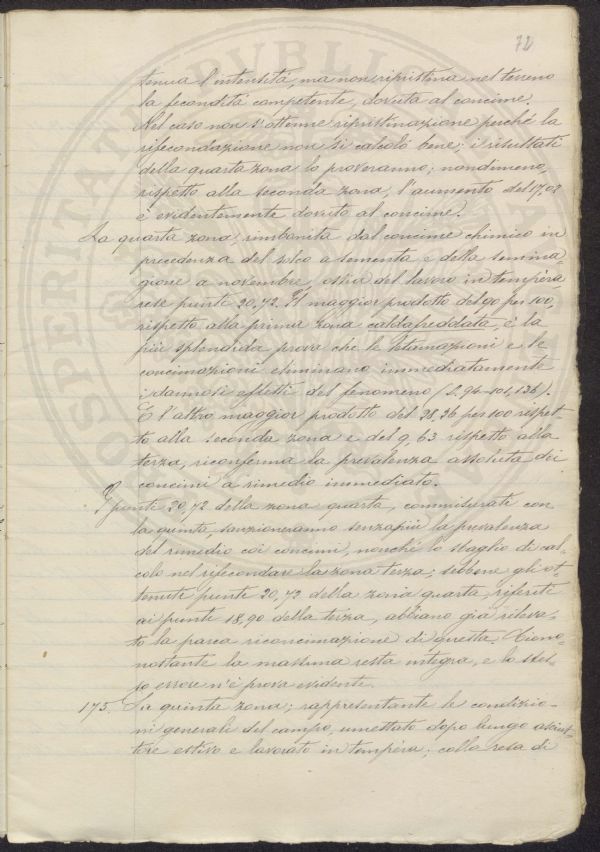 72
tenua l'intensità, ma non ripristina nel terreno
la fecondità competente, dovuta al concime.
Nel caso non s'ottenne ripristinazione perché la
rifecondazione non si calcolò bene; i risultati
della quarta zona lo proveranno; nondimeno,
rispetto alla seconda zona, l'aumento del 17,02
è evidentemente dovuto al concime.
La quarta zona, rimbonita dal concime chimico in
precedenza del solco a sementa e della semina-
gione a novembre, ossia del lavoro in tempèra
rese punte 20,72. Il maggior prodotto del 90 per 100,
rispetto alla prima zona caldafreddata, è la
più splendida prova che le letamazioni e le
concimazioni eliminano immediatamente
i dannosi effetti del fenomeno (S. 94-101, 136).
E l'altro maggior prodotto del 28,26 per 100 rispet-
to alla seconda zona e del 9,63 rispetto alla
terza, riconferma la prevalenza assoluta dei
concimi a rimedio immediato.
I punte 20,72 della zona quarta, commisurati con
la quinta, sanzioneranno senza più la prevalenza
del rimedio coi concimi, nonché lo sbaglio di cal-
colo nel rifecondare la zona terza; sebbene gli ot-
tenuti punte 20,72 della zona quarta, riferiti
ai punte 18,90 della terza, abbiano già rileva-
to la parca riconcimazione di questa. Ciono-
nostante la massima resta integra, e lo stes-
so errore n'è prova evidente.
175. La quinta zona; rappresentante le condizio-
ni generali del campo, umettato dopo lungo asciut-
tore estivo e lavorato in tempèra; colla resa di
PVBLICA